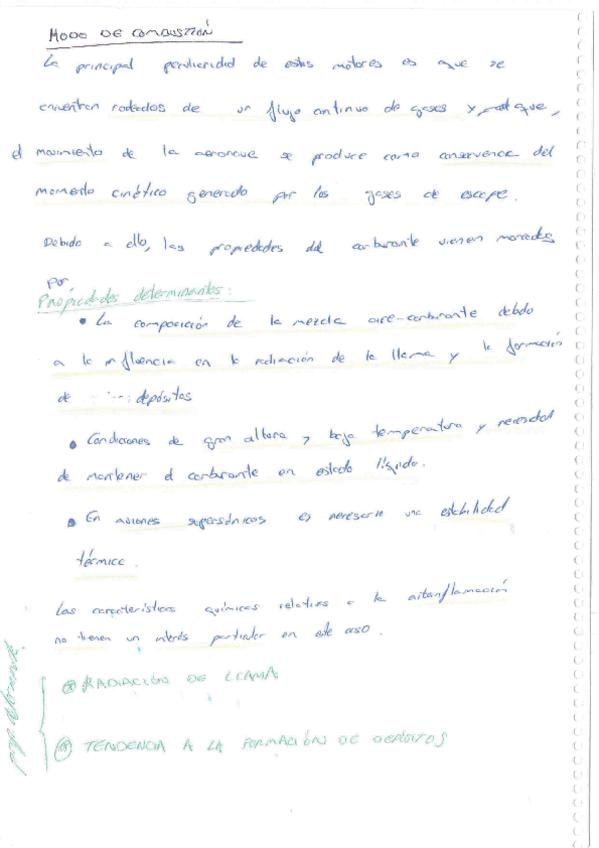 MODO DE COMBUSTIÓN
La principal peculiaridad de estos motores es que se
encuentran rodeados de un flujo continuo de gases y que,
el movimiento de la aeronave se produce como consecuencia del
momento cinético generado por los gases de escape.
Debido a ello, las propiedades del carburante vienen marcadas
por
Propiedades determinantes:
• La composición de la mezcla aire-carburante debido
a la influencia en la radiación de la llama y la formación
de depósitos
• Condiciones de gran altura y baja temperatura y necesidad
de mantener el carburante en estado líquido.
• En aviones supersónicos es necesario una estabilidad
térmica.
Las características químicas relativas a la autoinflamación
no tienen un interés particular en este caso.
RADIACIÓN DE LLAMA
TENDENCIA A LA FORMACIÓN DE DEPÓSITOS